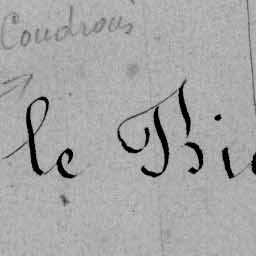 Coudrous
le Bi